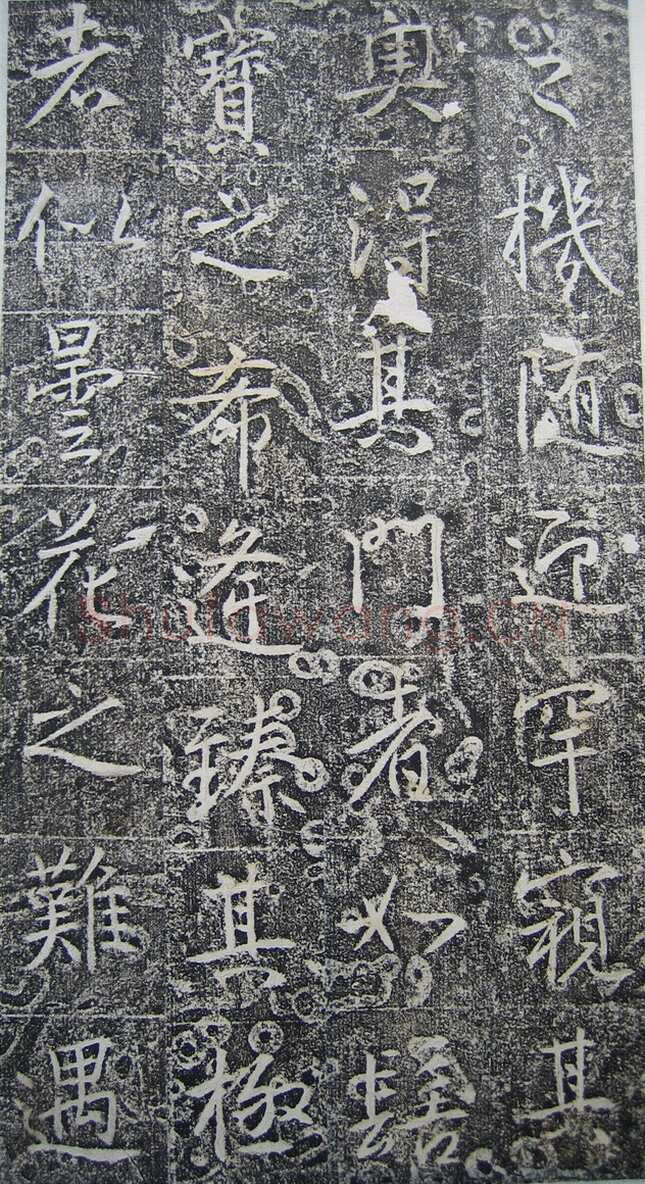 之機随迎罕窺其
奥得其門者如髻
寶之希逢臻其極
者似曇花之難遇
shufawang.CN